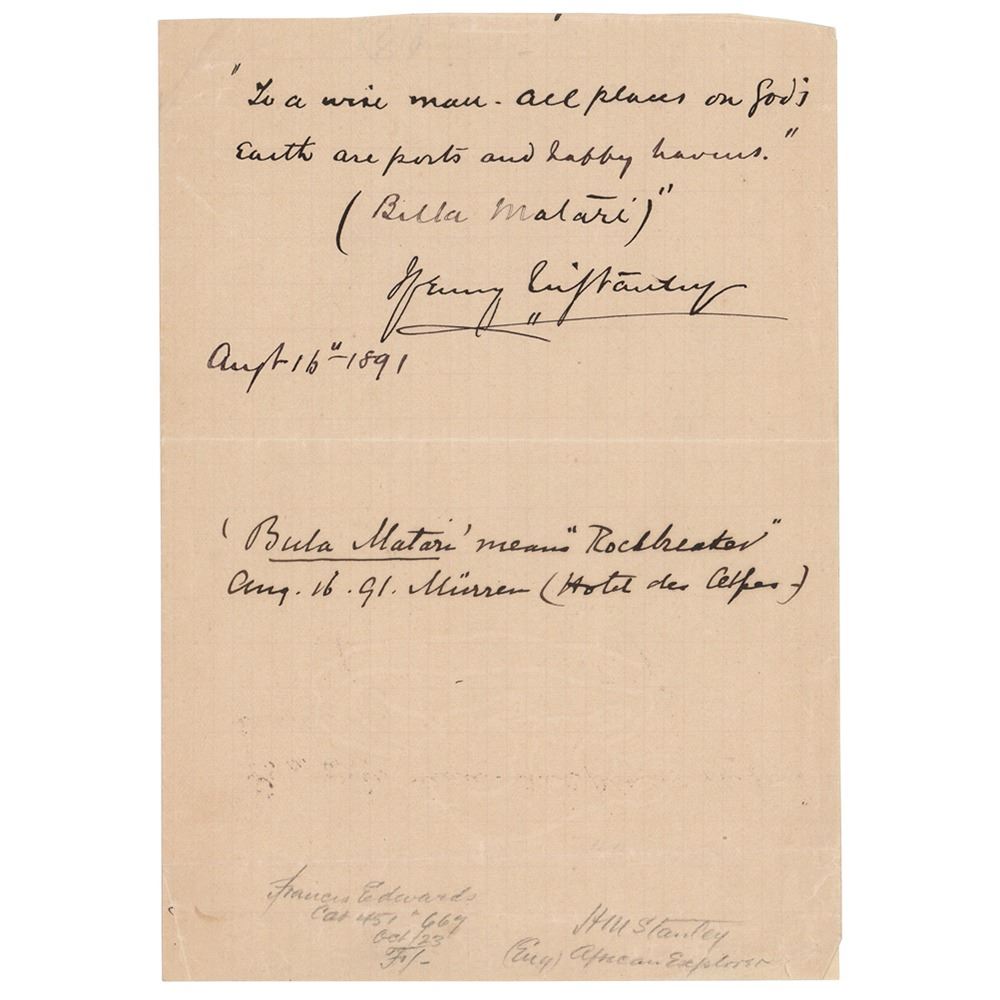 "To a wise man - all places on God's
Earth are ports and happy havens."
(Bulla Matāri)"
Henry M Stanley
Augt 16" 1891
'Bula Matari' means "Rockbreaker"
Aug. 16. 91. Mürren (Hotel des Alpes -)
Francis Edwards
Cat 451 " 667
Oct/23
HM Stanley
(Eng) African Explorer